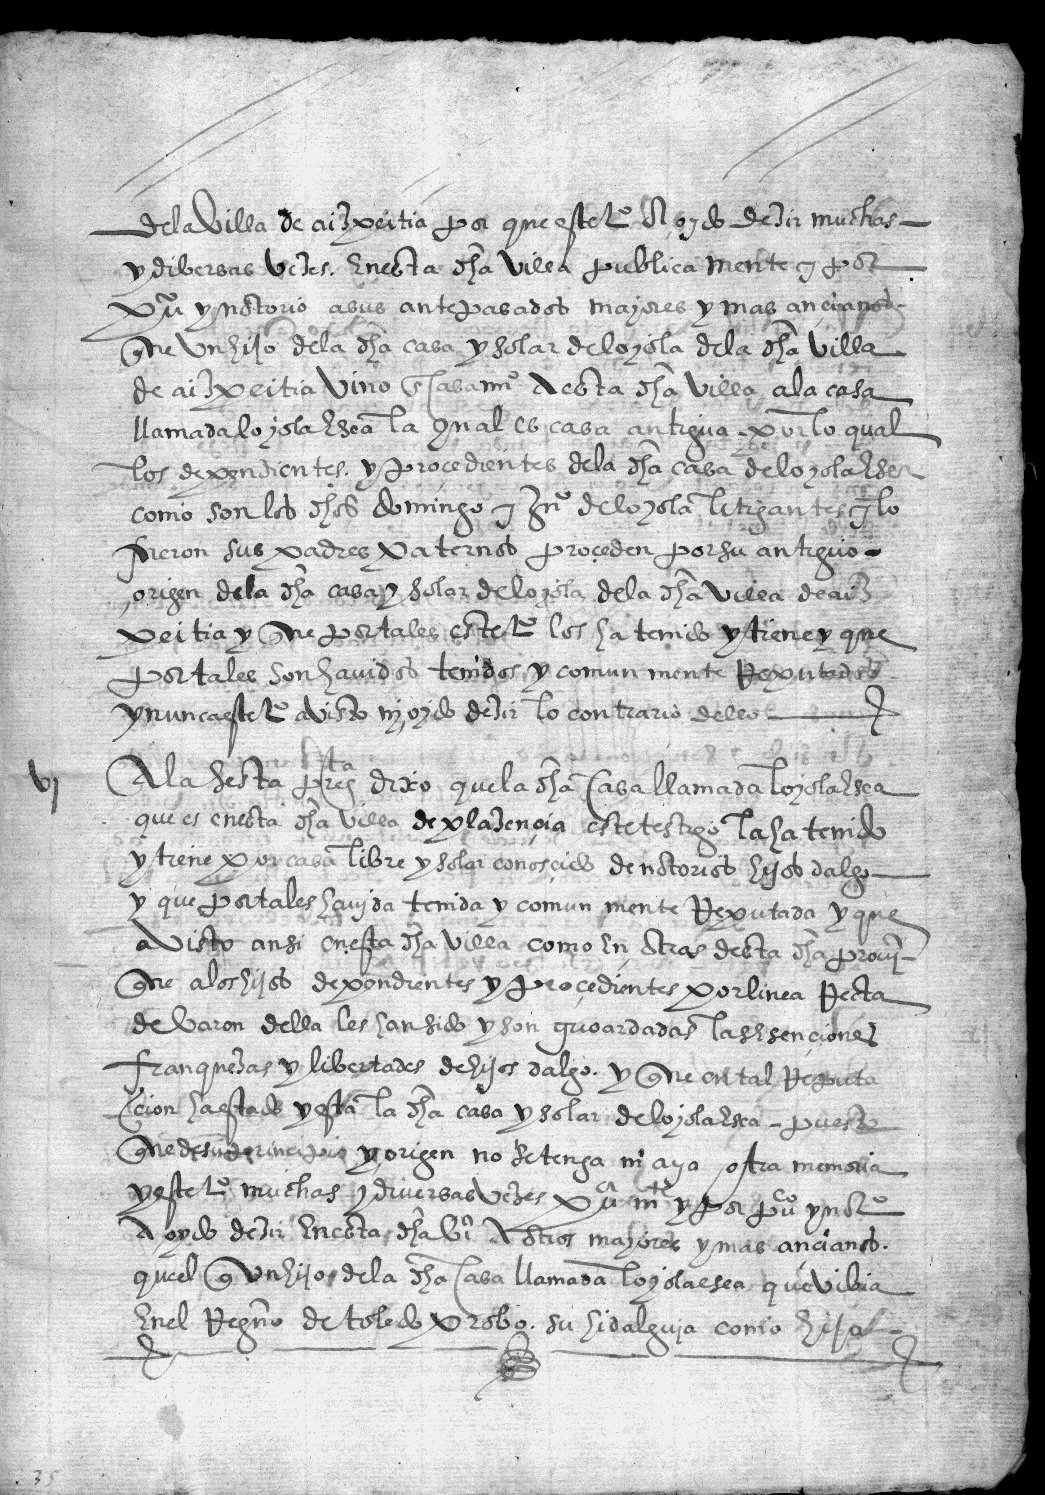 de la Villa de aizpeitia por que este tº a oydo dezir muchas
y diversas vezes. En esta dha Villa publica mente y por
puº y notorio a sus antepasados majores y mas ancianos
que Un hijo dela dha casa y solar de loyola dela dha Villa
de aizpeitia Vino Casamº A esta dha Villa a la casa
llamada loyola hsea la qual es casa antigua por lo qual
los dependientes. y procedientes dela dha casa de loyola hsea
como son los dhos domingo y Juº de loyola litigantes y lo
fueron sus padres paternos proçeden por su antiguo
origen dela dha casa y solar de loyola dela dha Villa de aiz
peitia y que por tales este tº los ha tenido y tiene y que
por tales son havidos tenidos y comun mente Reputados
y nunca este tº a visto nj oydo dezir lo contrario dello
vj A la sesta pregta dixo que la dha Casa llamada loyola hsea
que es en esta dha Villa de plazençia este testigo la ha tenido
y tiene por casa libre y solar conosçido de notorios hijos dalgo
y que por tal es havjda tenida y comun mente Reputada y que
a Visto ansi en esta dha Villa como En otras desta dha provj
que a los hijos dependientes y proçedientes por linea Recta
de Varon della les han sido y son guoardadas las hsençiones
franquezas y libertades de hijos dalgo. y que en tal Reputa
cion ha estado y esta la dha casa y solar de loyola hsea - puesto
que de su principio y origen no se tenga nj aya otra memoria
y este tº muchas y diversas vezes puca mte y por puco y notº
A oydo dezir En esta dha Vª A otros majores y mas ançianos.
quel q Un hijo dela dha Casa llamada loyola esea que vibia
Enel Regno de toledo probo. su hidalguja como hijo
35